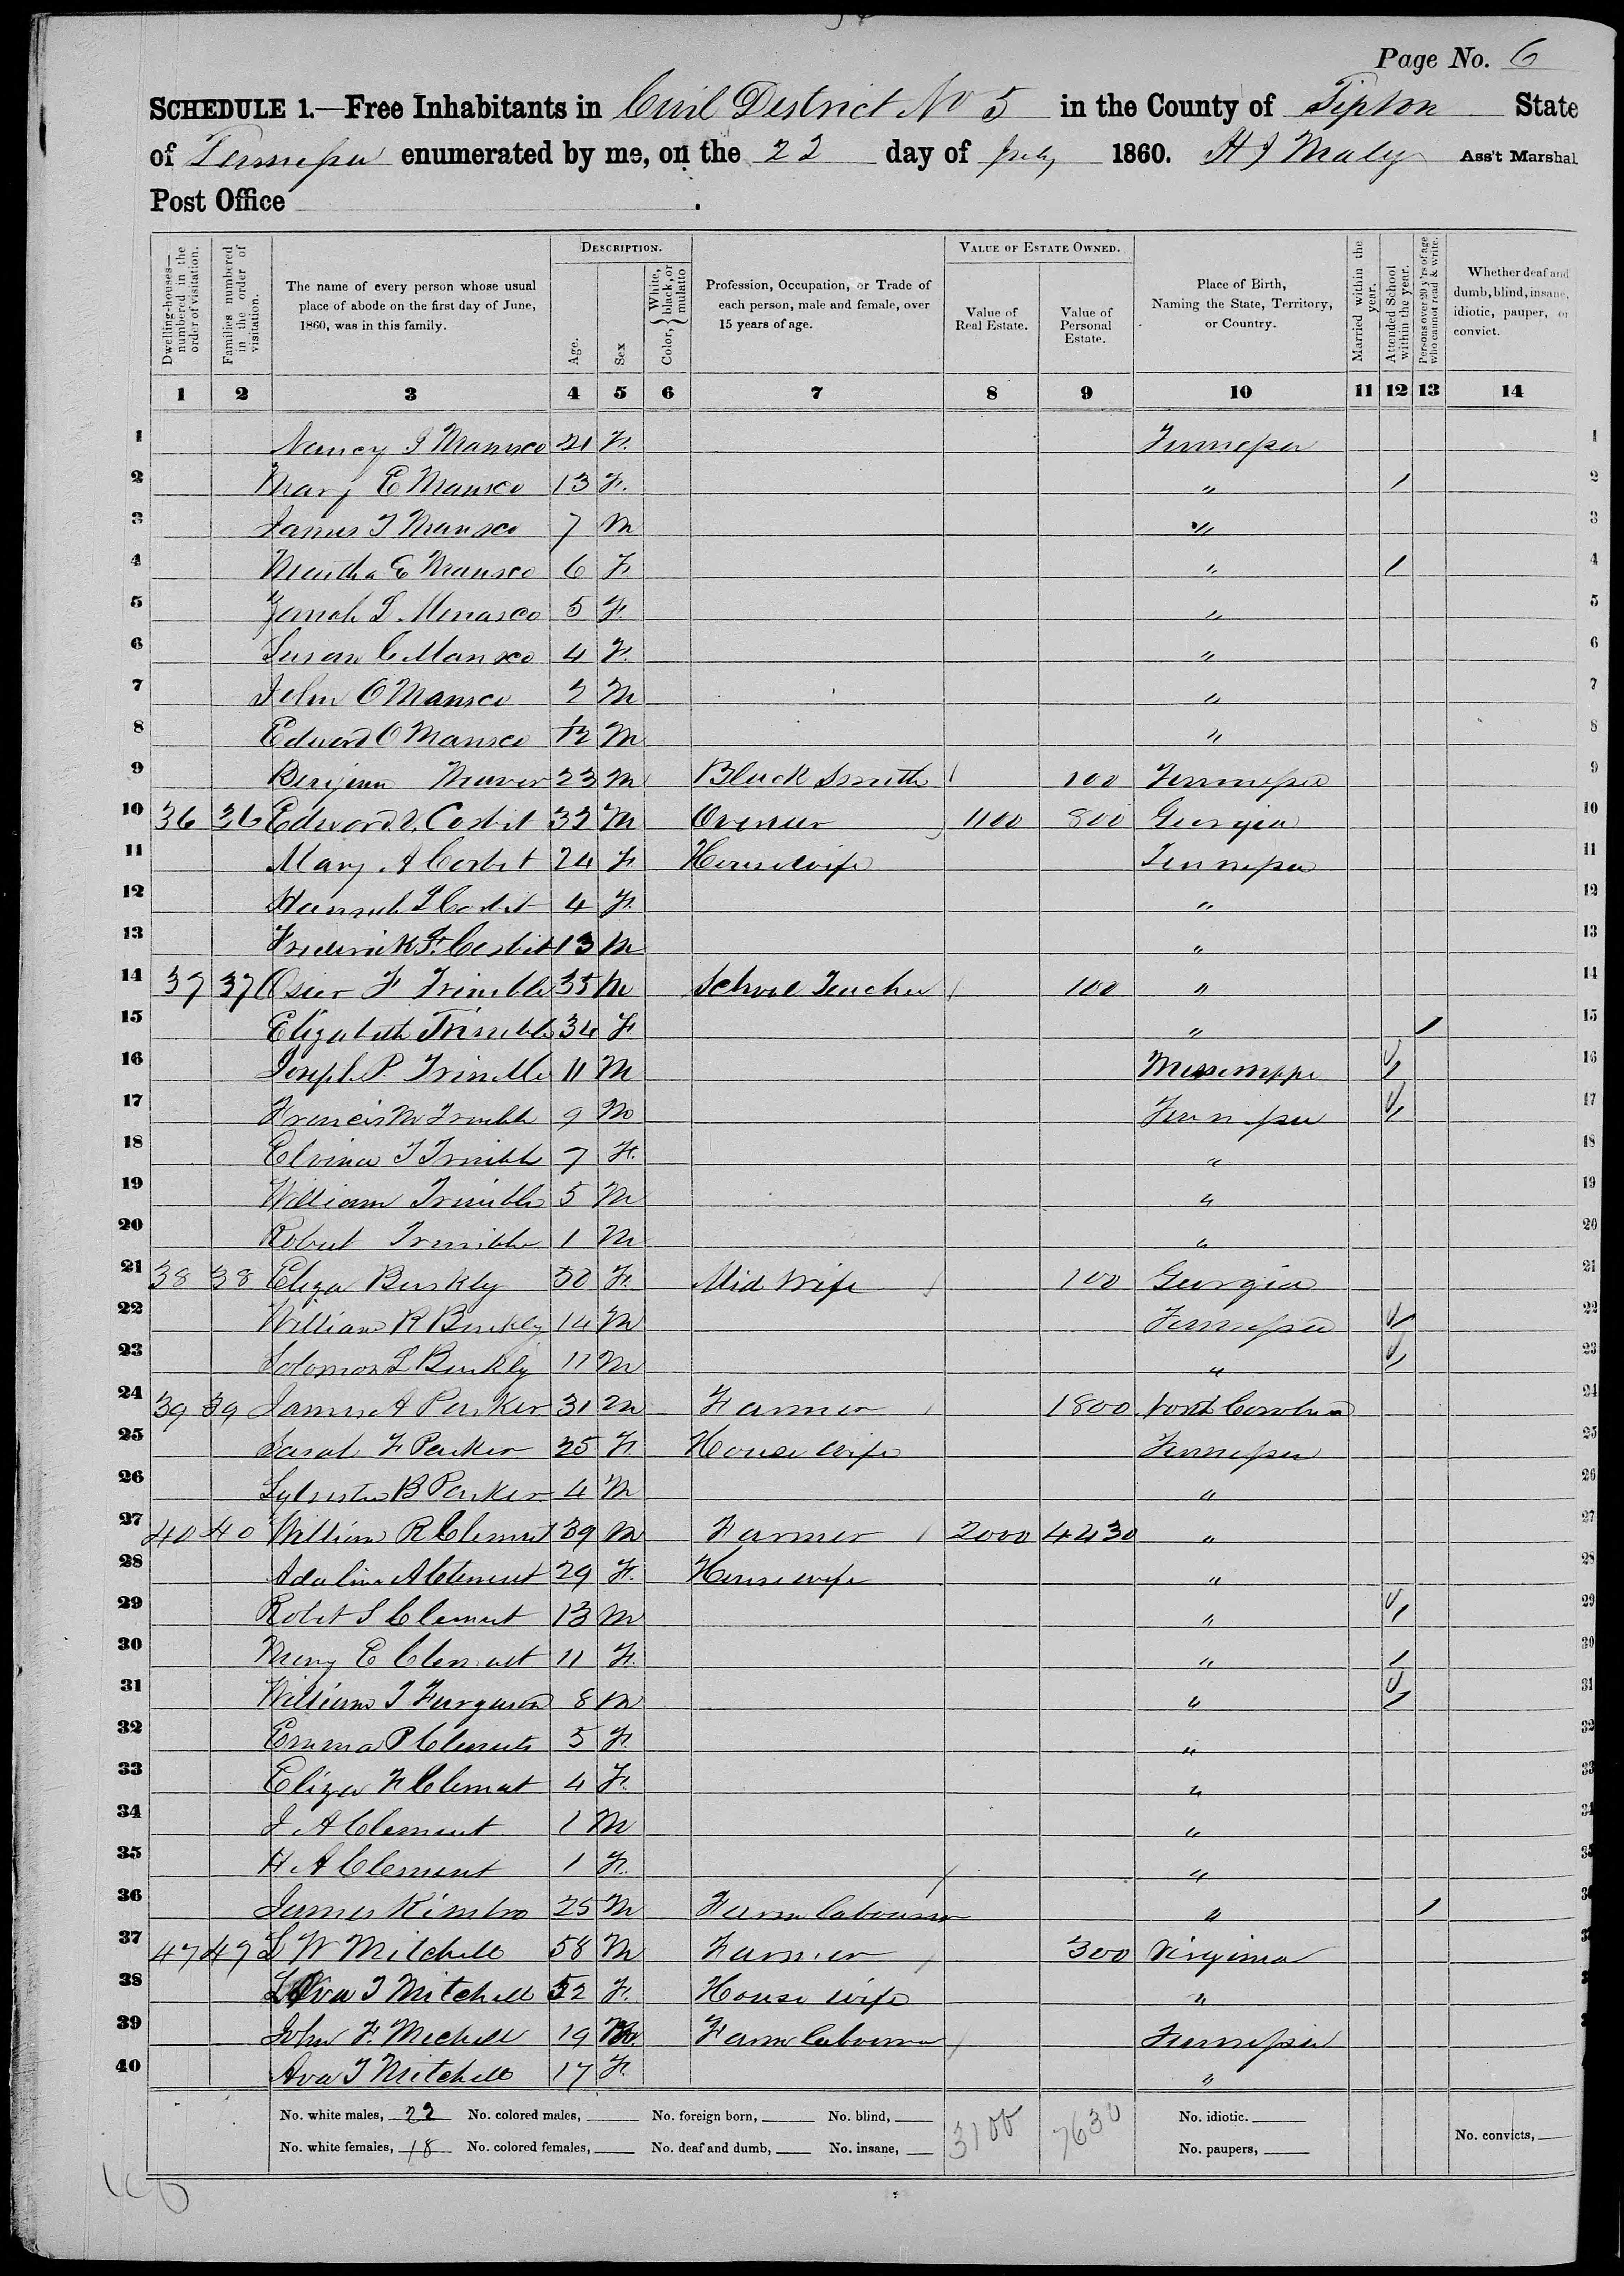 Page No. 6
SCHEDULE 1.—Free Inhabitants in Civil District No 5 in the County of Tipton State
of Tennessee enumerated by me, on the 22 day of July 1860. H J Maley Ass't Marshal
Post Office .
Dwelling-houses—numbered in the order of visitation. Families numbered in the order of visitation. The name of every person whose usual place of abode on the first day of June, 1860, was in this family. DESCRIPTION. Age. Sex Color, White, black, or mulatto Profession, Occupation, or Trade of each person, male and female, over 15 years of age. VALUE OF ESTATE OWNED. Value of Real Estate. Value of Personal Estate. Place of Birth, Naming the State, Territory, or Country. Married within the year. Attended School within the year. Persons over 20 y'rs of age who cannot read & write. Whether deaf and dumb, blind, insane, idiotic, pauper, or convict.
1 2 3 4 5 6 7 8 9 10 11 12 13 14
1 Nancy J Mansco 21 F. Tennessee 1
2 Mary E Mansco 13 F. " / 2
3 James T Mansco 7 M " 3
4 Martha E Mansco 6 F " / 4
5 L. Menasco 5 F. " 5
6 Susan C Mansco 4 F. " 6
7 John O Mansco 2 M " 7
8 Edward O Mansco M " 8
9 23 M Black Smith 100 Tennessee 9
10 36 36 Edward Cosbit 33 M Overseer 1100 800 Georgia 10
11 Mary A Cosbit 24 F. Housewife Tennessee 11
12 Hannah L Cosbit 4 F. " 12
13 Frederick F. Cosbit 13 M " 13
14 37 37 Osier F Trimble 35 M School Teacher 100 " 14
15 Elizabeth Trimble 34 F. " / 15
16 Joseph P. Trimble 11 M Messeseppi / 16
17 Francis M Trimble 9 M Tennessee / 17
18 Elvina T Trimble 7 F. " 18
19 William Trimble 5 M " 19
20 Robert Trimble 1 M " 20
21 38 38 Eliza Binkly 50 F. Mid Wife 100 Georgia 21
22 William R Binkly 14 M Tennessee / 22
23 Solomon L Binkly 11 M " / 23
24 39 39 James A Parker 31 M Farmer 1800 North Carolina 24
25 Sarah F Parker 25 F. House wife Tennessee 25
26 Sylvester B Parker 4 M " 26
27 40 40 William R Clement 39 M Farmer 2000 4430 " 27
28 Adaline A Clement 29 F. Housewife " 28
29 Robet S Clement 13 M " / 29
30 Mary E Clement 11 F. " / 30
31 William T Furguson 8 M " / 31
32 Emma P Clements 5 F. " 32
33 Eliza F Clement 4 F. " 33
34 J A Clement 1 M " 34
35 H A Clement 1 F. " 35
36 James Kimbro 25 M Farm Labourer " / 36
37 47 47 L W Mitchell 58 M Farmer 300 Virginia 37
38 T Mitchell 52 F. House wife "
39 John F. Michell 19 M Farm Labourer Tennessee
40 Ava T Mitchell 17 F. "
No. white males, 22 No. colored males, No. foreign born, No. blind, 3100 7630 No. idiotic.
No. white females, 18 No. colored females, No. deaf and dumb, No. insane, No. paupers, No. convicts,